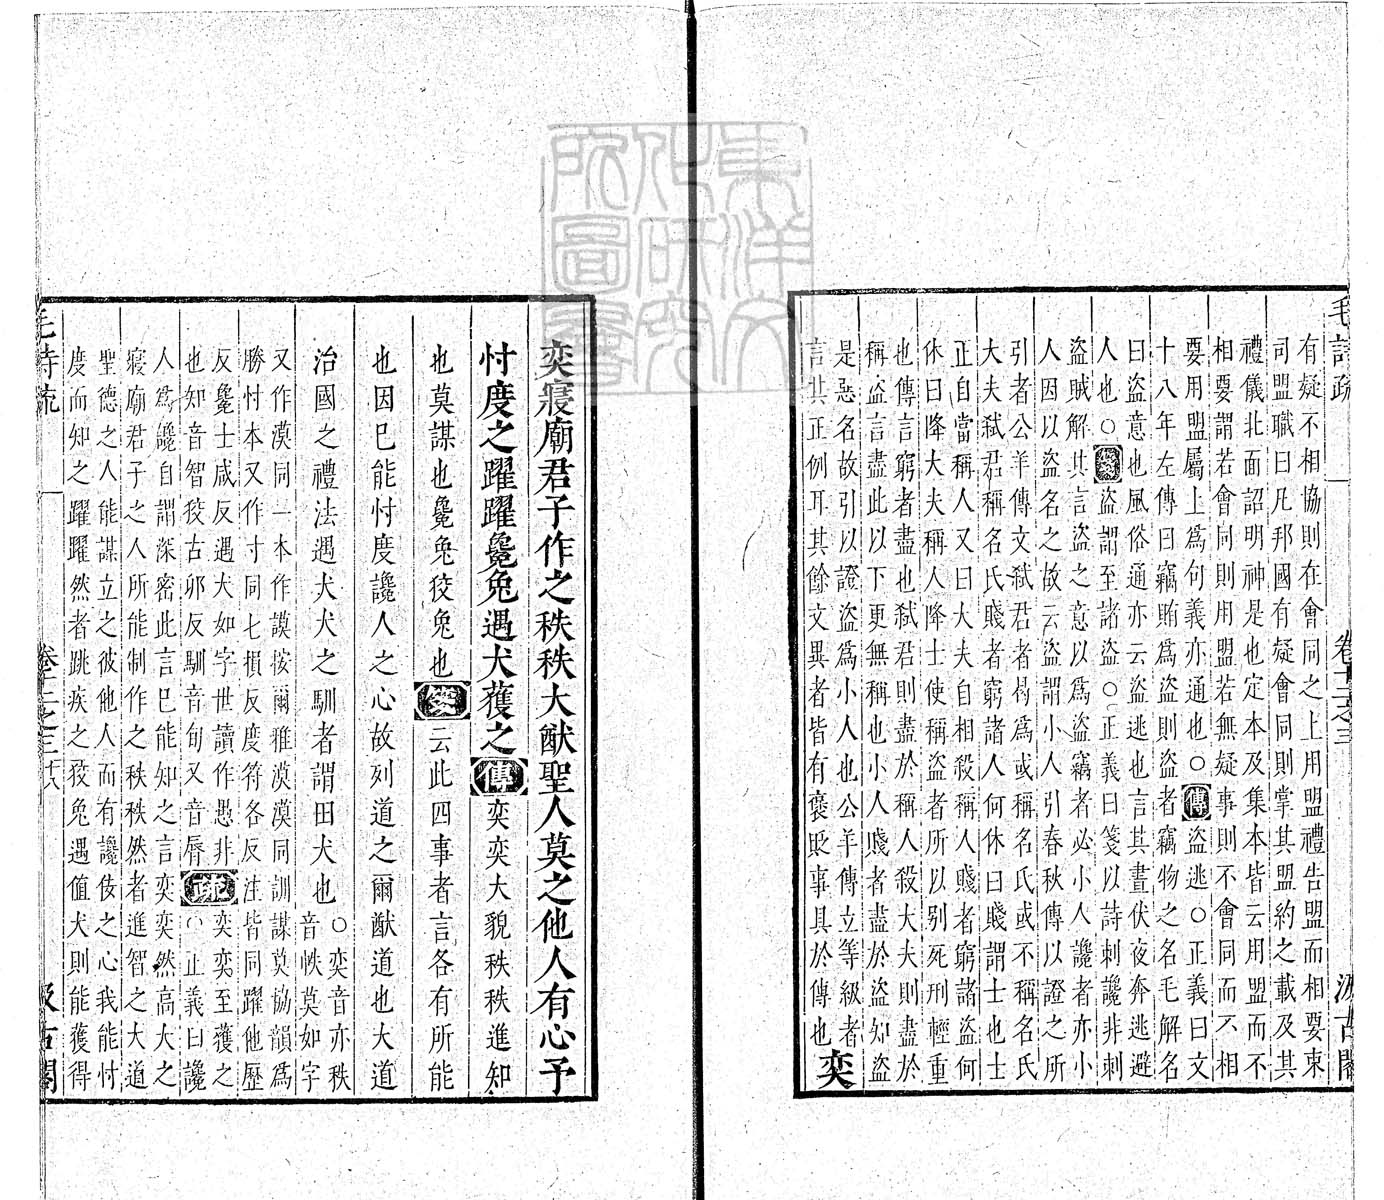 毛詩疏
卷十二之三
汲古閣
有疑不相協則在會同之上用盟禮告盟而相要束
司盟職曰凡邦國有疑會同則掌其盟約之載及其
禮儀北面詔明神是也定本及集本皆云用盟而不
相要謂若會同則用盟若無疑事則不會同而不相
要用盟屬上爲句義亦通也○傳盜逃○正義曰文
十八年左傳曰竊賄爲盜則盜者竊物之名毛解名
曰盜意也風俗通亦云盜逃也言其晝伏夜奔逃避
人也○箋盜謂至諸盜○正義曰箋以詩刺讒非刺
盜賊解其言盜之意以爲盜竊者必小人讒者亦小
人因以盜名之故云盜謂小人引春秋傳以證之所
引者公羊傳文弒君者曷爲或稱名氏或不稱名氏
大夫弒君稱名氏賤者窮諸人何休曰賤謂士也士
正自當稱人又曰大夫自相殺稱人賤者窮諸盜何
休曰降大夫稱人降士使稱盜者所以别死刑輕重
也傳言窮者盡也弒君則盡於稱人殺大夫則盡於
稱盜言盡此以下更無稱也小人賤者盡於盜知盜
是惡名故引以證盜爲小人也公羊傳立等級者
言其正例耳其餘文異者皆有褒貶事具於傳也奕
奕寢廟君子作之秩秩大猷聖人莫之他人有心予
忖度之躍躍毚兔遇犬獲之傳奕奕大貌秩秩進知
也莫謀也毚兔狡兔也箋云此四事者言各有所能
也因已能忖度讒人之心故列道之爾猷道也大道
治國之禮法遇犬犬之馴者謂田犬也○奕音亦秩
音帙莫如字
又作漠同一本作謨按爾雅漠漠同訓謀莫協韻爲
勝忖本又作寸同七損反度符各反注皆同躍他歷
反毚士咸反遇犬如字世讀作愚非
也知音智狡古卯反馴音旬又音脣疏奕奕至獲之
○正義曰讒
人爲讒自謂深密此言已能知之言奕奕然高大之
寢廟君子之人所能制作之秩秩然者進智之大道
聖德之人能謀立之彼他人而有讒佞之心我能忖
度而知之躍躍然者跳疾之狡兔遇值犬則能獲得
毛詩疏
卷十二之三
汲古閣